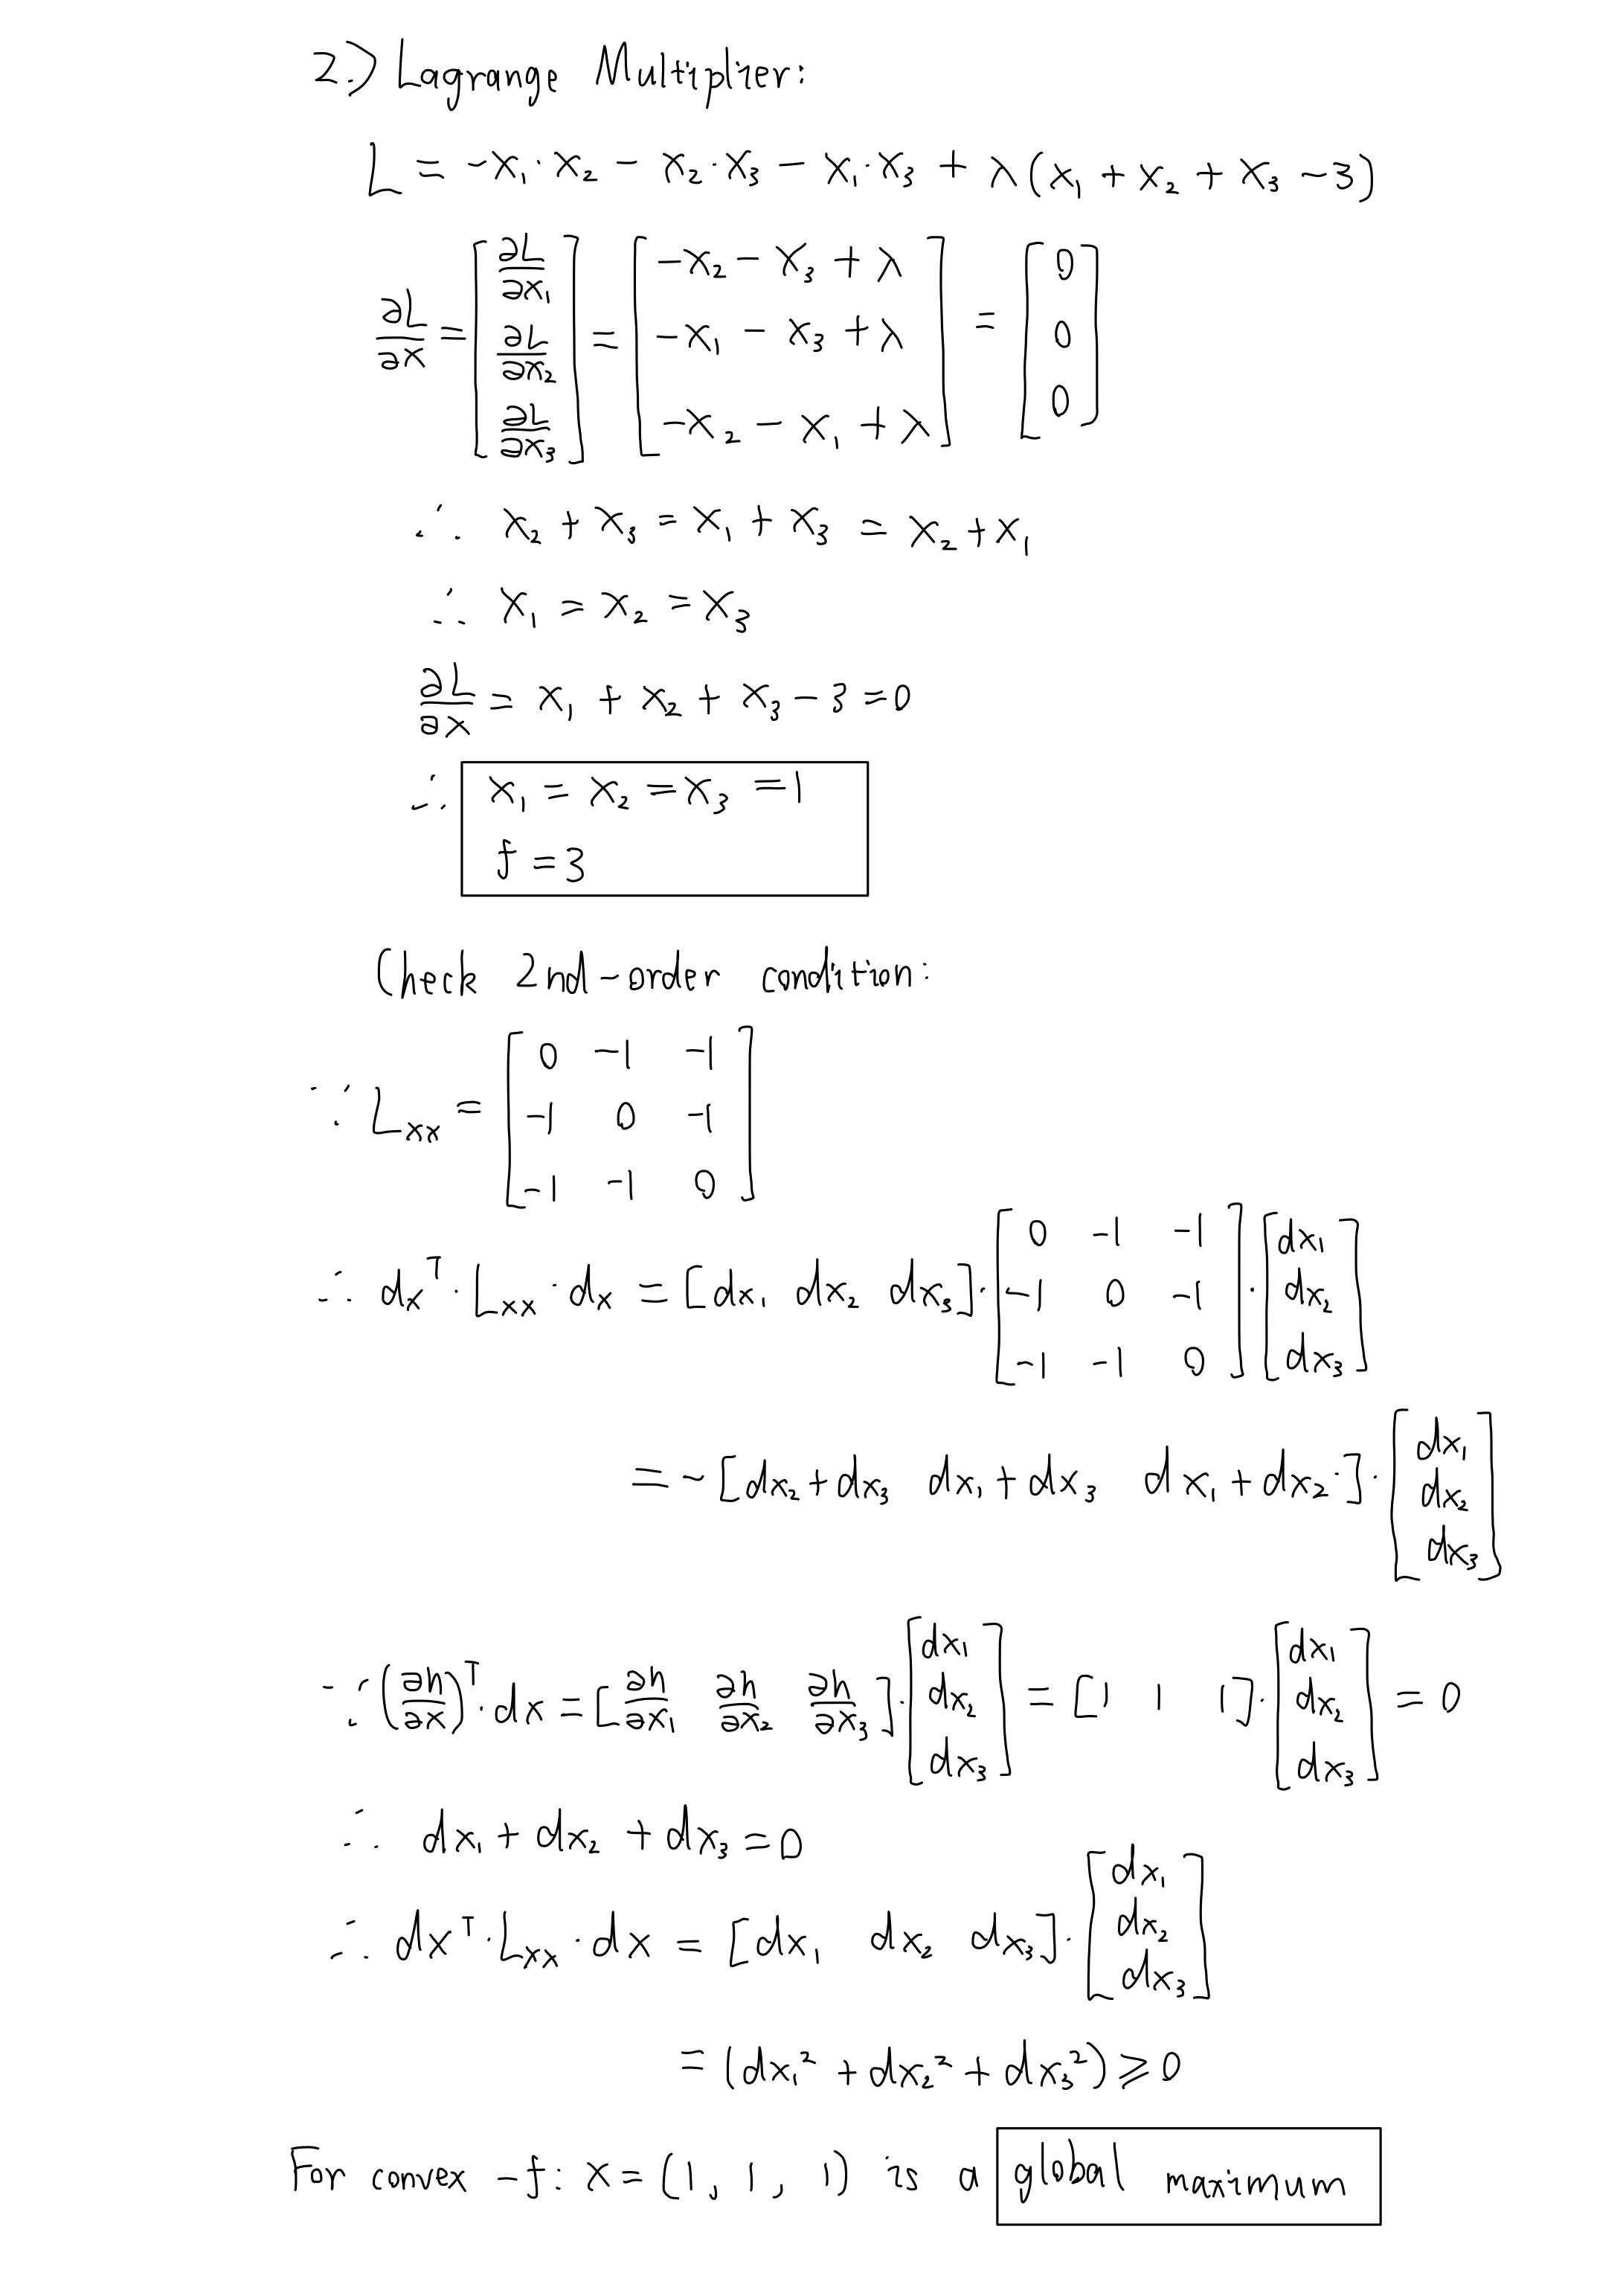 2.) Lagrange Multiplier:
L = -x₁·x₂ - x₂·x₃ - x₁·x₃ + λ(x₁ + x₂ + x₃ - 3)
∂L/∂x = [∂L/∂x₁; ∂L/∂x₂; ∂L/∂x₃] = [-x₂ - x₃ + λ; -x₁ - x₃ + λ; -x₂ - x₁ + λ] = [0; 0; 0]
∴ x₂ + x₃ = x₁ + x₃ = x₂ + x₁
∴ x₁ = x₂ = x₃
∂L/∂x = x₁ + x₂ + x₃ - 3 = 0
∴ x₁ = x₂ = x₃ = 1
f = 3
Check 2nd-order condition:
∵ Lₓₓ = [0 -1 -1; -1 0 -1; -1 -1 0]
∴ dxᵀ·Lₓₓ·dx = [dx₁ dx₂ dx₃]·[0 -1 -1; -1 0 -1; -1 -1 0]·[dx₁; dx₂; dx₃]
= -[dx₂+dx₃ dx₁+dx₃ dx₁+dx₂·]·[dx₁; dx₂; dx₃]
∵ (∂h/∂x)ᵀ·dx = [∂h/∂x₁ ∂h/∂x₂ ∂h/∂x₃]·[dx₁; dx₂; dx₃] = [1 1 1]·[dx₁; dx₂; dx₃] = 0
∴ dx₁ + dx₂ + dx₃ = 0
∴ dxᵀ·Lₓₓ·dx = [dx₁ dx₂ dx₃]·[dx₁; dx₂; dx₃]
= (dx₁² + dx₂² + dx₃²) ⩾ 0
For convex -f: x = (1, 1, 1) is a global maximum